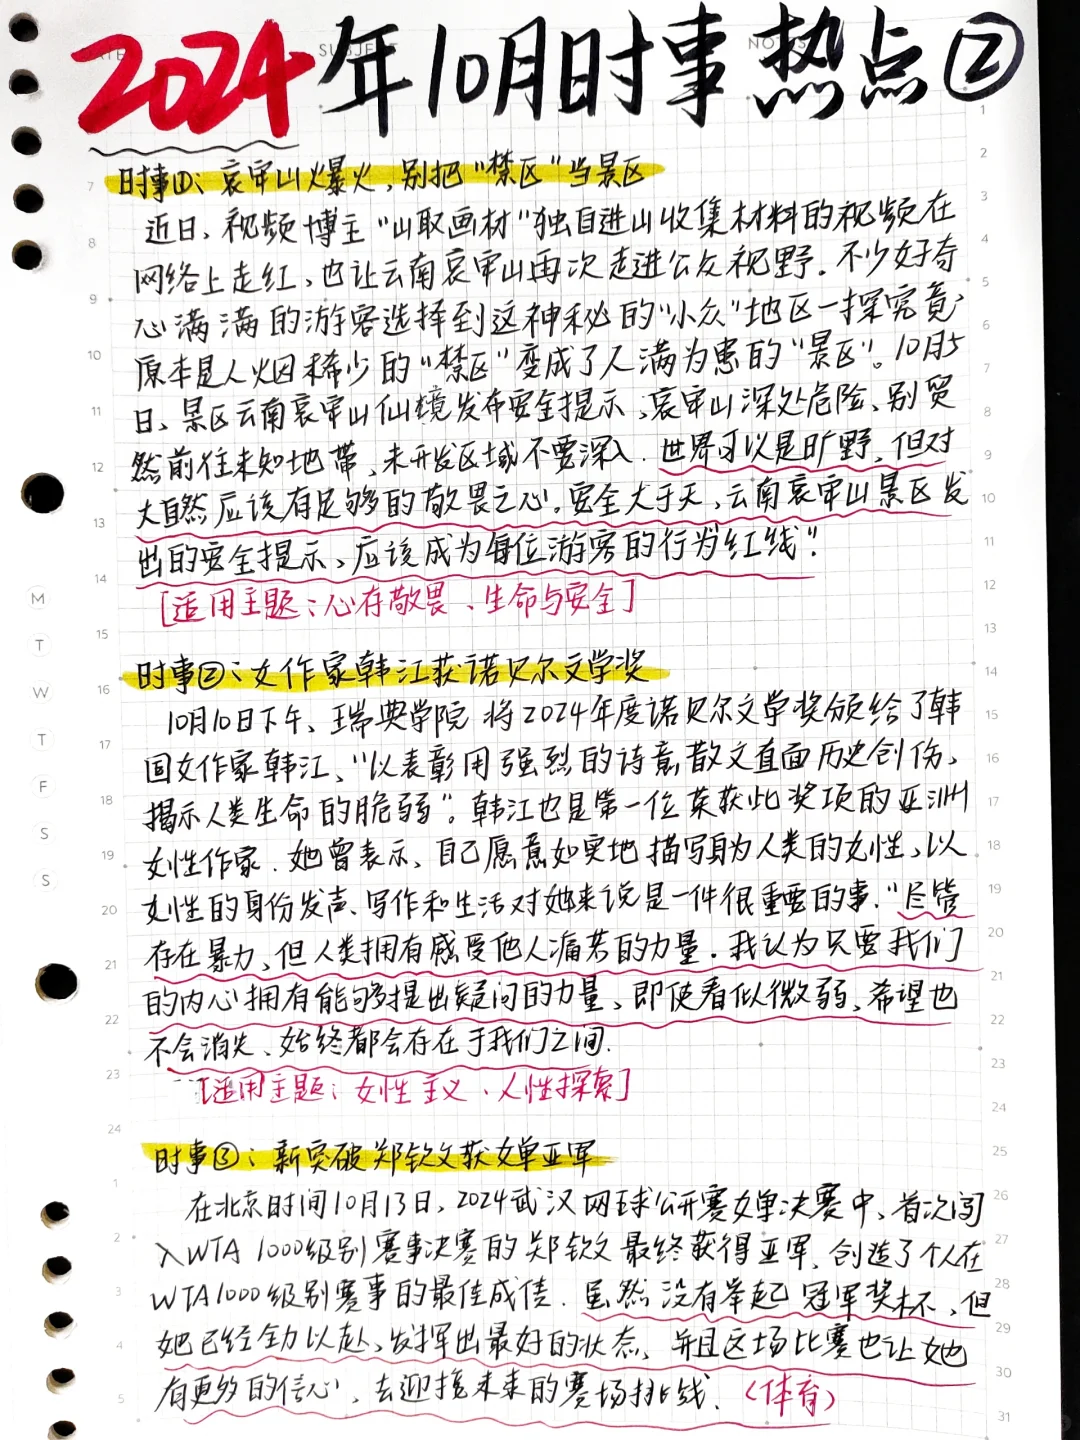 2024年10月时事热点②
时事①：哀牢山爆火，别把“禁区”当景区
近日，视频博主“山取画材”独自进山收集材料的视频在
网络上走红，也让云南哀牢山再次走进公众视野。不少好奇
心满满的游客选择到这神秘的“小众”地区一探究竟，
原本是人烟稀少的“禁区”变成了人满为患的“景区”。10月5
日，景区云南哀牢山仙境发布安全提示，哀牢山深处危险，别贸
然前往未知地带，未开发区域不要深入。世界可以是旷野，但对
大自然应该有足够的敬畏之心。安全大于天，云南哀牢山景区发
出的安全提示，应该成为每位游客的行为“红线”。
[适用主题：心存敬畏、生命与安全]
时事②：女作家韩江获诺贝尔文学奖
10月10日下午，瑞典学院将2024年度诺贝尔文学奖颁给了韩
国女作家韩江，“以表彰用强烈的诗意散文直面历史创伤，
揭示人类生命的脆弱”。韩江也是第一位荣获此奖项的亚洲
女性作家。她曾表示，自己愿意如实地描写身为人类的女性，以
女性的身份发声、写作和生活对她来说是一件很重要的事。“尽管
存在暴力，但人类拥有感受他人痛苦的力量。我认为只要我们
的内心拥有能够提出疑问的力量，即使看似微弱，希望也
不会消失，始终都会存在于我们之间。
[适用主题：女性主义、人性探索]
时事③：新突破郑钦文获女单亚军
在北京时间10月13日，2024武汉网球公开赛女单决赛中，首次闯
入WTA 1000级别赛事决赛的郑钦文最终获得亚军，创造了个人在
WTA1000级别赛事的最佳成绩。虽然没有举起冠军奖杯，但
她已经全力以赴，发挥出最好的状态，并且这场比赛也让她
有更多的信心，去迎接未来的赛场挑战。（体育）